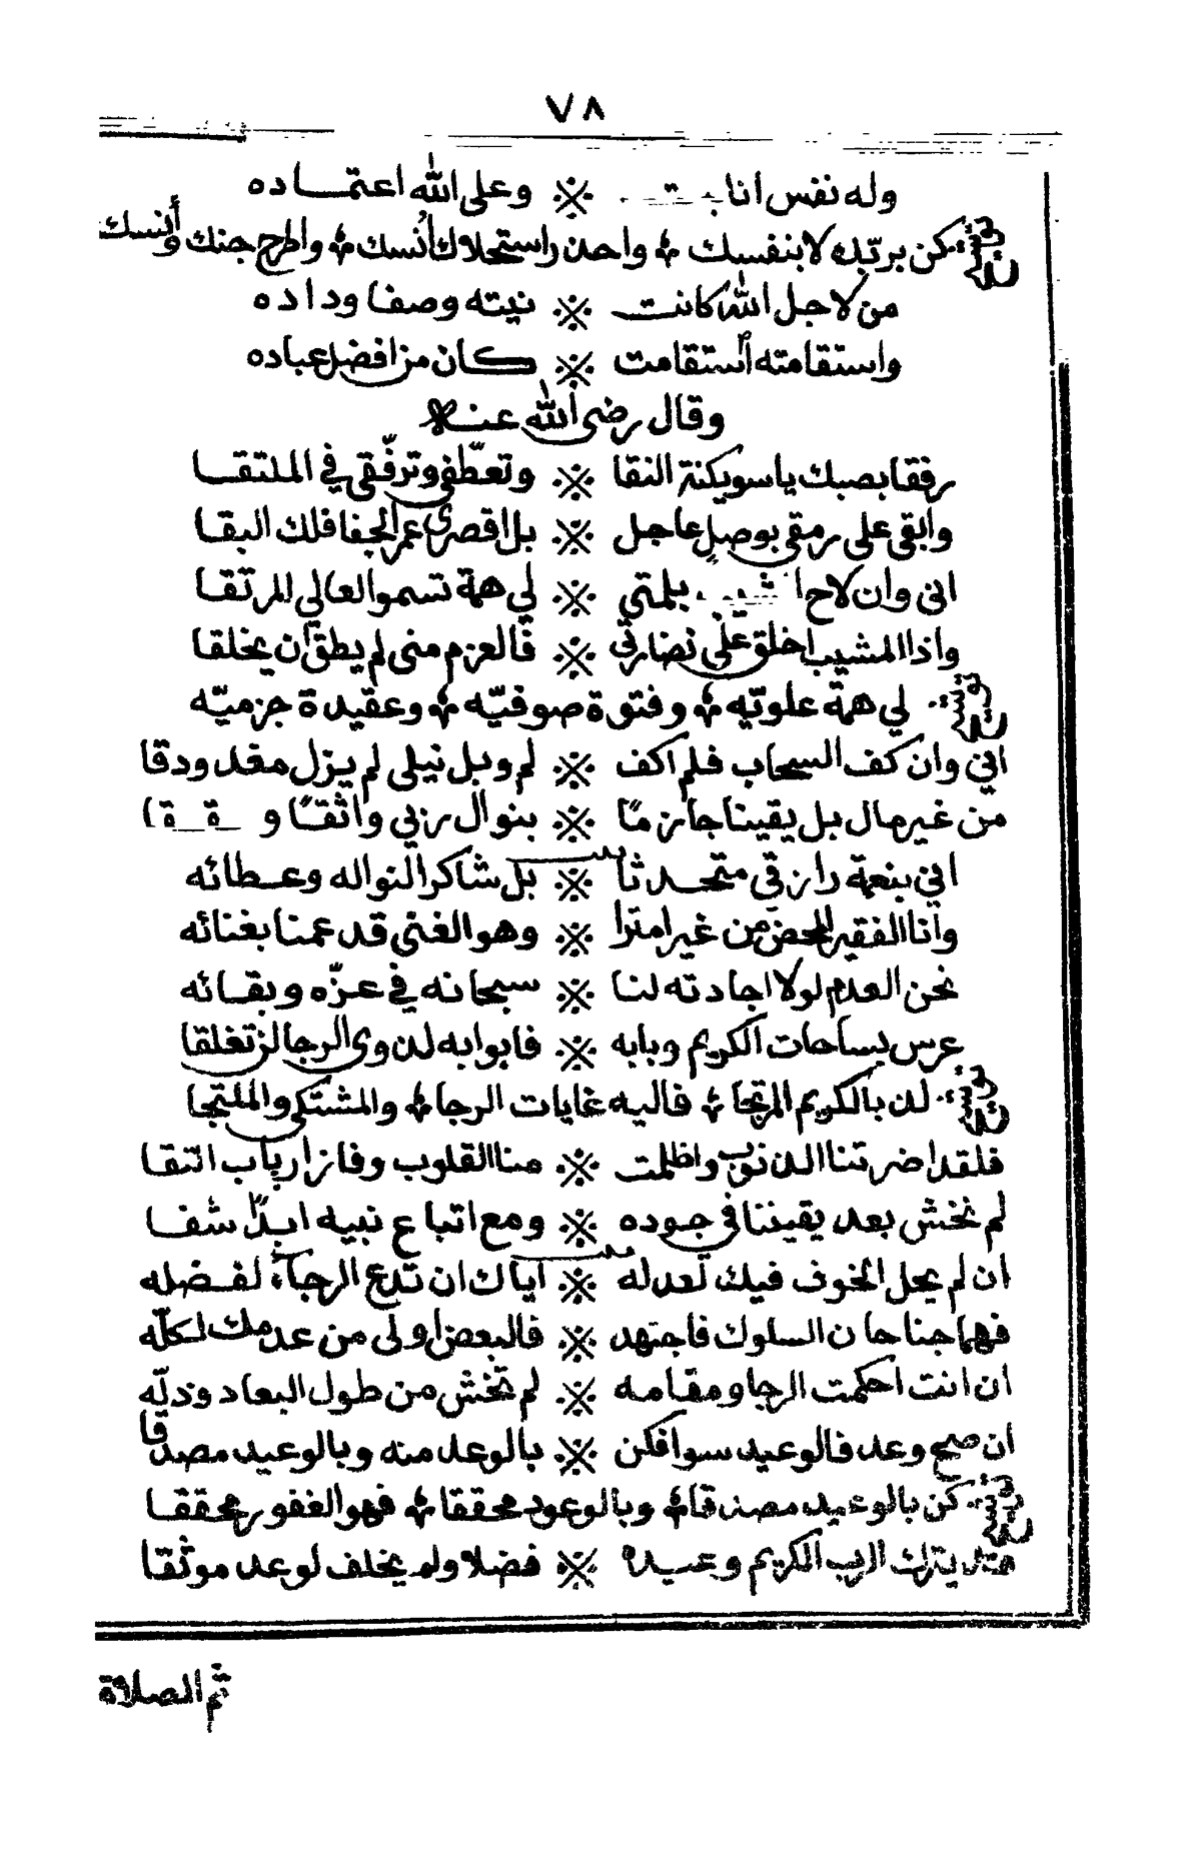 ٧٨
وله نفس انابت ※ وعلى الله اعتمـاده
توشيح كن بربّك لا بنفسك ؞ واحذر استحلاك أنسك ؞ واطرح جنك وأنسك
من لاجل الله كانت ※ نيته وصفا وداده
واستقامته استقامت ※ كان من افضل عباده
وقال رضي الله عنه
رفقا بصبك يا سويكنة النقا ※ وتعطّفي وترفّقي في الملتقـا
وابقي على رمقي بوصل عاجل ※ بل اقصري عمر الجفا فلك البقا
اني وان لاح المشيب بلمتي ※ لي همة تسمو العالي المرتقـا
واذا المشيب اخلق على نضارتي ※ فالعزم مني لم يطق أن يخلقا
توشيح لي همة علوتيه ؞ وفتوة صوفيّه ؞ وعقيدة جزميّه
اني وان كف السحاب فلم اكف ※ لم وبل نيلي لم يزل مغدودقا
من غير مال بل يقينا جازمًا ※ بنوال ربي واثقـًا و
اني بنعمة رازقي متحـدثا ※ بل شاكرا لنواله وعـطائه
وانا الفقير المحض من غير امترا ※ وهو الغني قد عمنا بغنائه
نحن العدم لولا اجادته لنـا ※ سبحانه في عـزّه وبقـائه
عرس بساحات الكريم وبابه ※ فابوابه لذوي الرجا لن تغلقا
توشيح لذ بالكريم المرتجا ؞ فاليه غايات الرجا ؞ والمشتكى والملتجا
فلقد اضرتنا الذنوب واظلمت ※ منا القلوب وفاز ارباب التقـا
لم نخش بعد يقيننا في جوده ※ ومع اتباع نبيه ابدًا شقـا
ان لم يحل الخوف فيك لعدله ※ اياك ان تدع الرجاء لفـضله
فهما جناحان السلوك فاجتهد ※ فالبعض اولى من عدمك لكلّه
ان انت احكمت الرجا ومقـامه ※ لم تخش من طول البعاد وذلّه
ان صح وعد فالوعيد سوا فكن ※ بالوعد منه وبالوعيد مصدقا
توشيح كن بالوعيد مصدقا ؞ وبالوعود محققا ؞ فهو الغفور محققـا
قد يترك الرب الكريم وعـيده ※ فضلا ولم يخلف لوعد موثقـا
ثم الصلاة